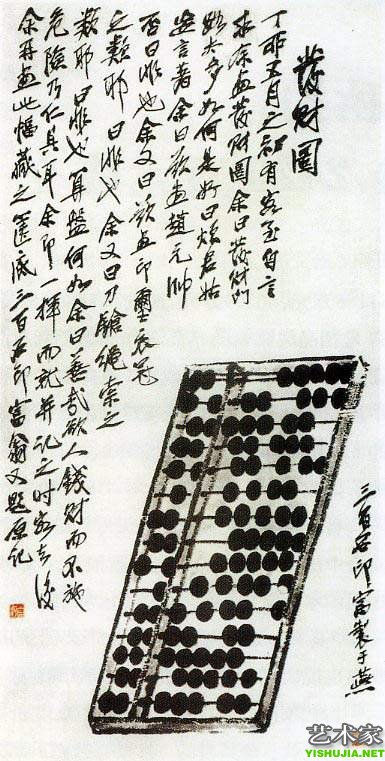 發財圖
丁卯五月之初有客至自言
求余畫發財圖余曰發財門
路太多如何是好曰煩君姑
妄言著余曰欲畫趙元帥
否曰非也余又曰欲畫印璽衣冠
之類耶曰非也余又曰刀鎗繩索之
類耶曰非也算盤何如余曰善哉欲人錢財而不施
危險乃仁具耳余即一揮而就并記之時客去後
余再畫此幅藏之篋底三百石印富翁又題原記
三百石印富翁製于燕
艺术家
YISHUJIA.NET